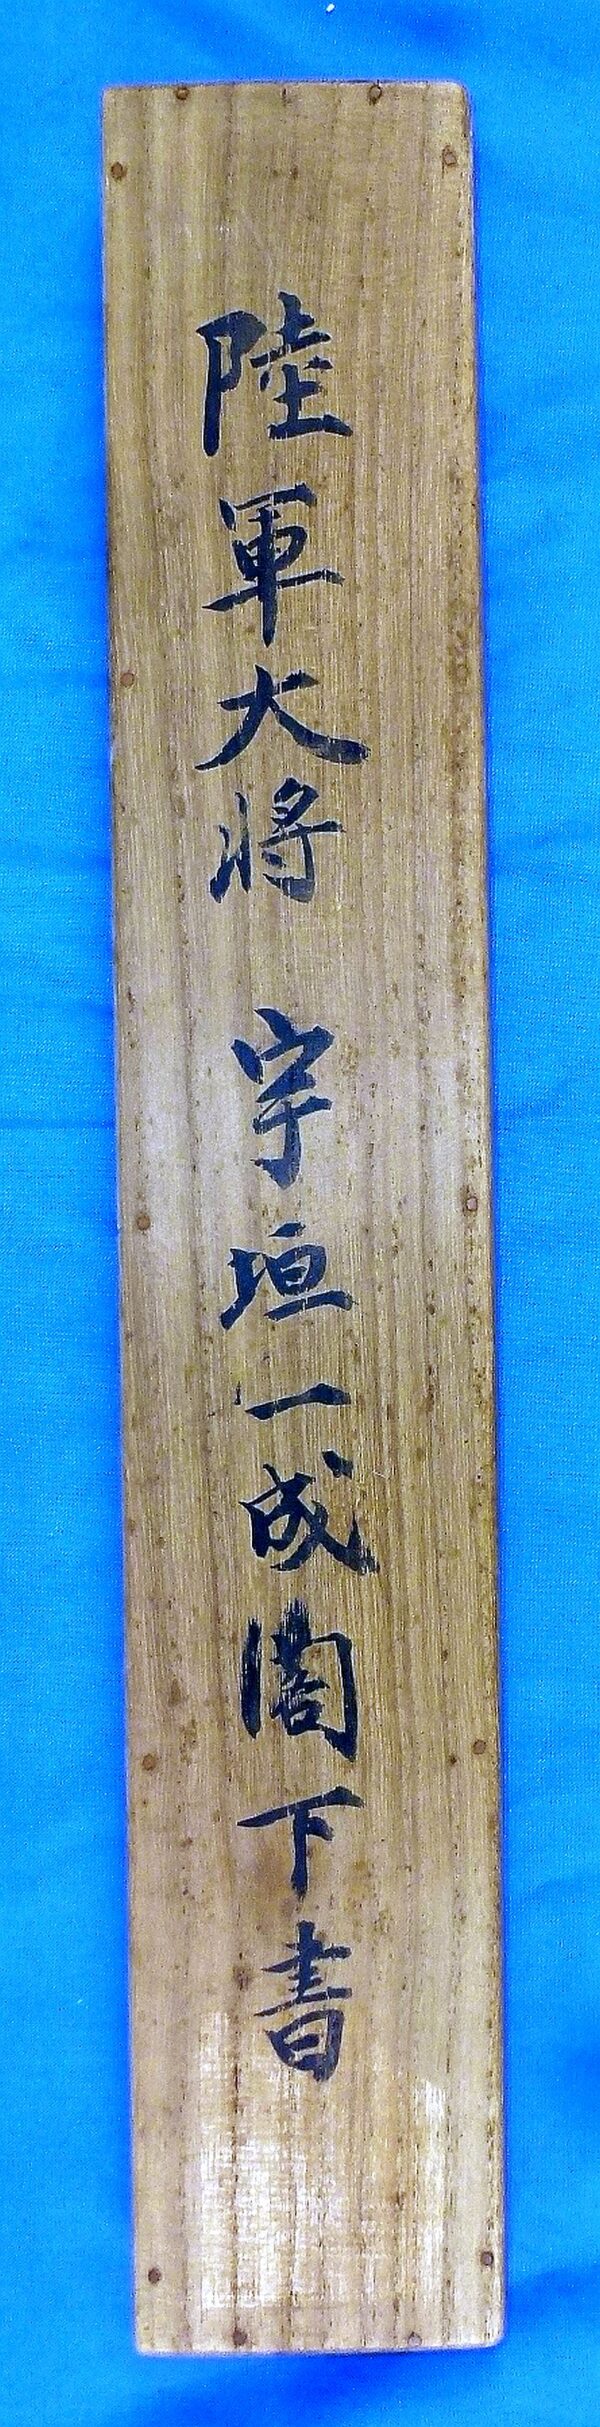 陸軍大将 宇垣一成閣下書